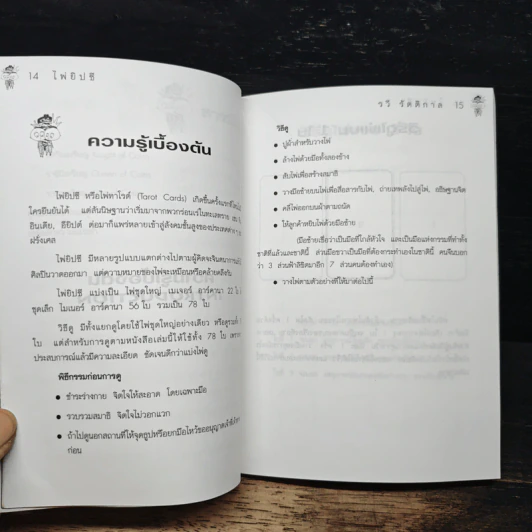 14 ไพ่ยิปซี
ความรู้เบื้องต้น
ไพ่ยิปซี หรือไพ่ทาโรต์ (Tarot Cards) เกิดขึ้นครั้งแรกที่ไหน
ใครยืนยันได้ แต่สันนิษฐานว่าเริ่มมาจากพวกร่อนเร่ในทะเลทราย เช่น
อินเดีย, อียิปต์ ต่อมาก็แพร่หลายเข้าสู่สังคมชั้นสูงของประเทศต่าง
ฝรั่งเศส
ไพ่ยิปซี มีหลายรูปแบบแตกต่างไปตามผู้คิดจะจินตนาการ
ศิลปินวาดออกมา แต่ความหมายของไพ่จะเหมือนหรือคล้ายคลึงกัน
ไพ่ยิปซี แบ่งเป็น ไพ่ชุดใหญ่ เมเจอร์ อาร์คานา 22 ใบ
ชุดเล็ก ไมเนอร์ อาร์คานา 56 ใบ รวมเป็น 78 ใบ
วิธีดู มีทั้งแยกดูโดยใช้ไพ่ชุดใหญ่อย่างเดียว หรือดูรวมทั้ง
ใบ แต่สำหรับการดูตามหนังสือเล่มนี้ให้ใช้ทั้ง 78 ใบ เพราะ
ประสบการณ์แล้วมีความละเอียด ชัดเจนดีกว่าแบ่งไพ่ดู
พิธีกรรมก่อนการดู
● ชำระร่างกาย จิตใจให้สะอาด โดยเฉพาะมือ
● รวบรวมสมาธิ จิตใจไม่วอกแวก
● ถ้าไปดูนอกสถานที่ให้จุดธูปหรือยกมือไหว้ขออนุญาตเจ้าที่เจ้าทาง
ก่อน
รวี รัตติกาล 15
วิธีดู
● ปูผ้าสำหรับวางไพ่
● ล้างไพ่ด้วยมือทั้งสองข้าง
● สับไพ่เพื่อสร้างสมาธิ
● วางมือซ้ายบนไพ่เพื่อสื่อสารกับไพ่, ถ่ายเทพลังไปสู่ไพ่, อธิษฐานจิต
● คลี่ไพ่ออกบนผ้าตามถนัด
● ให้ลูกค้าหยิบไพ่ด้วยมือซ้าย
(มือซ้ายเชื่อว่าเป็นมือที่ใกล้หัวใจ และเป็นมือแห่งกรรมที่ทำทั้ง
ชาติที่แล้วและชาตินี้ ส่วนมือขวาเป็นมือที่ต้องการทำเองในชาตินี้ คนจีนบอก
ว่า 3 ส่วนฟ้าลิขิตมาอีก 7 ส่วนคนต้องทำเอง)
● วางไพ่ตามตัวอย่างที่ให้มาต่อไปนี้